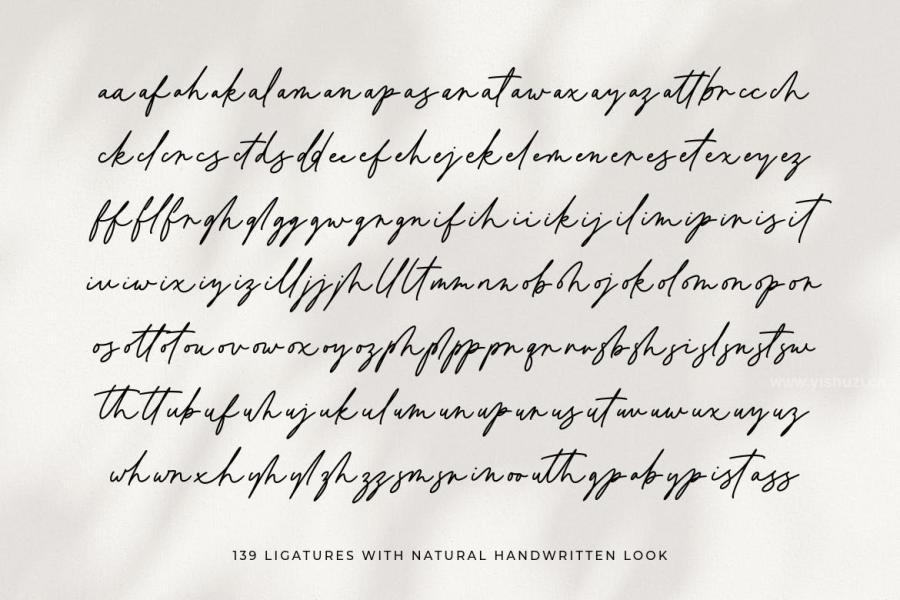 aa af ah ak al am an ap as ar at aw ax ay az att br cc ch
ck cl cr cs ct ds dd ee ef eh ej ek el em en er es et ex ey ez
ff fl fr gh gl gg gw gr gn if ih ii ik ij il im ip ir is it
iu iw ix iy iz ill jj jh ll lt mm nn ob oh oj ok ol om on op or
os ott ot ou ov ow ox oy oz ph pl pp pn qn rr sb sh si sl sn st sw
th tt ub uf uh uj uk ul um un up ur us ut uv uw ux uy uz
wh wn xh yh yl zh zz sm sr in oo uth gp ab yp ist ass
www.yishuzi.cn
139 LIGATURES WITH NATURAL HANDWRITTEN LOOK